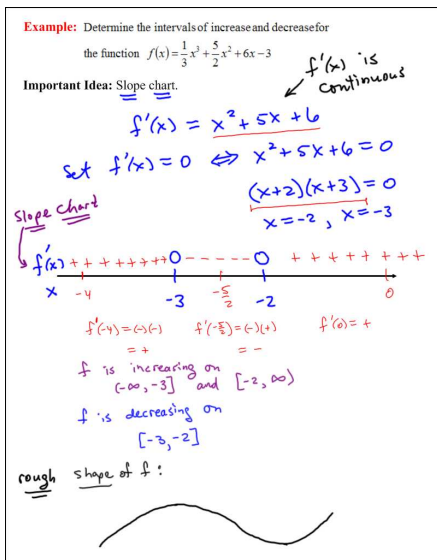 Example: Determine the intervals of increase and decrease for
the function f(x)=1/3x³+5/2x²+6x−3
f'(x) is
continuous
Important Idea: Slope chart.
f'(x) = x²+5x+6
Set f'(x)=0 ⇔ x²+5x+6=0
(x+2)(x+3)=0
x=-2, x=-3
Slope Chart
f'(x) + + + + + + + + 0 - - - - - 0 + + + + + + + +
x -4 -3 -5/2 -2 0
f'(-4)=(-)(-) f'(-5/2)=(-)(+) f'(0)=+
= + = -
f is increasing on
(-∞,-3] and [-2,∞)
f is decreasing on
[-3,-2]
rough shape of f: